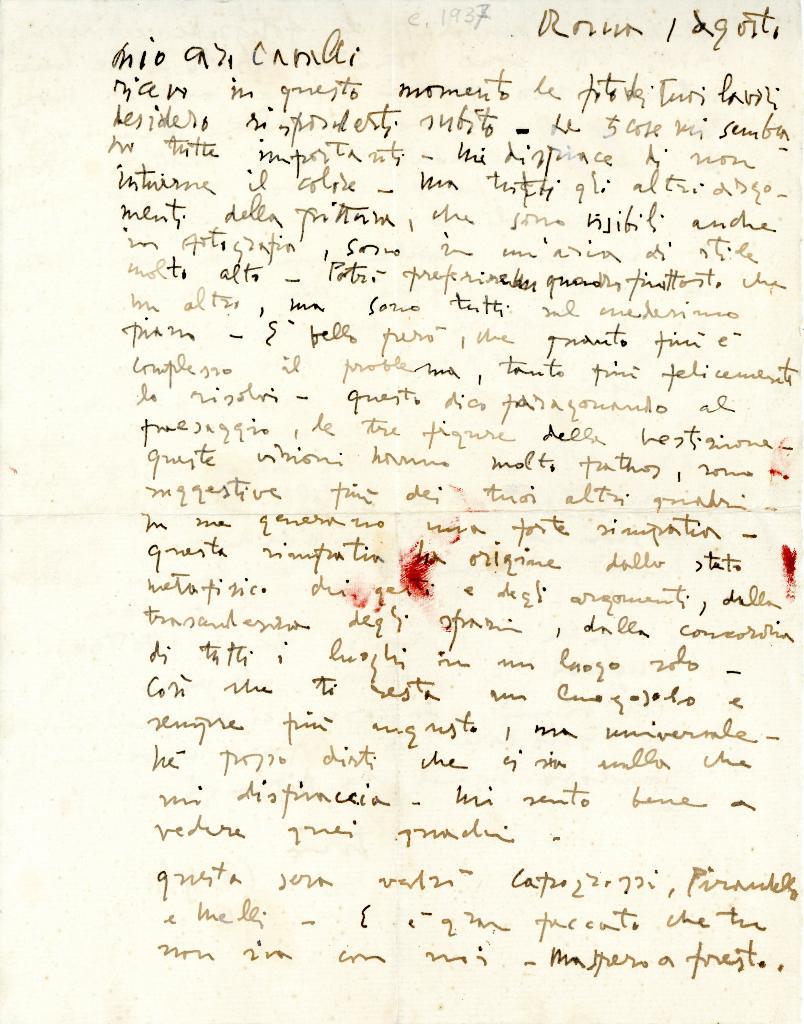 c. 1937
Roma 1 Agosto
mio caro Cavalli
ricevo in questo momento le foto dei tuoi lavori
desidero risponderti subito - le 5 cose mi sembra-
no tutte importanti - Mi dispiace di non
intuirne il colore - ma tutti gli altri argo-
menti della pittura, che sono visibili anche
in fotografia, sono in un'aria di stile
molto alto - Potrò preferire un quadro piuttosto che
un altro, ma sono tutti sul medesimo
piano - È bello però, che quanto più è
complesso il problema, tanto più felicemente
lo risolvi - questo dico paragonando al
paesaggio, le tre figure della vestizione -
queste visioni hanno molto pathos, sono
suggestive più dei tuoi altri quadri -
In me generano una forte simpatia -
questa simpatia ha origine dallo stato
metafisico dei gesti e degli argomenti, dalla
trascendenza degli spazi, dalla concordia
di tutti i luoghi in un luogo solo -
Così che ti resta un luogo solo e
sempre più angusto, ma universale -
Né posso dirti che ci sia nulla che
mi dispiaccia - Mi sento bene a
vedere quei quadri -
questa sera vedrò Capogrossi, Pirandello
e Melli - E è gran peccato che tu
non sia con noi - Ma spero a presto.